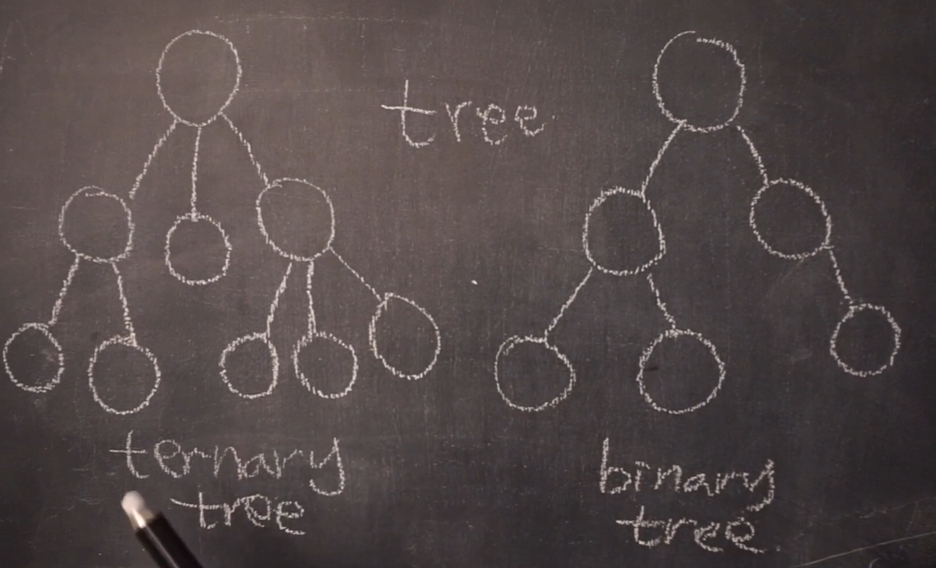 tree
ternary
tree
binary
tree